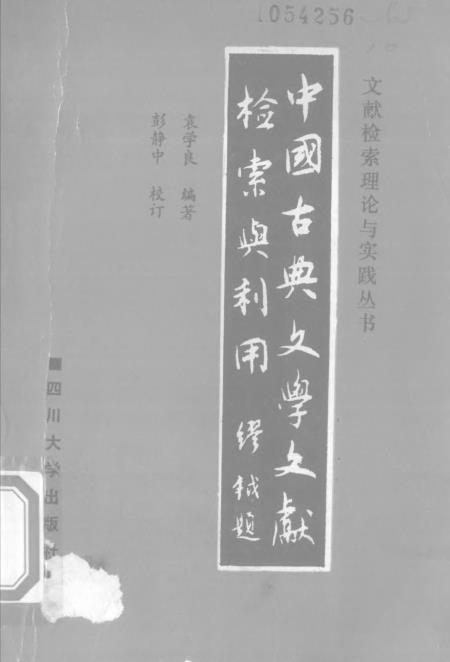 1054256
文献检索理论与实践丛书
中國古典文學文獻
检索與利用
缪钺题
袁学良 编著
彭静中 校订
四川大学出版社